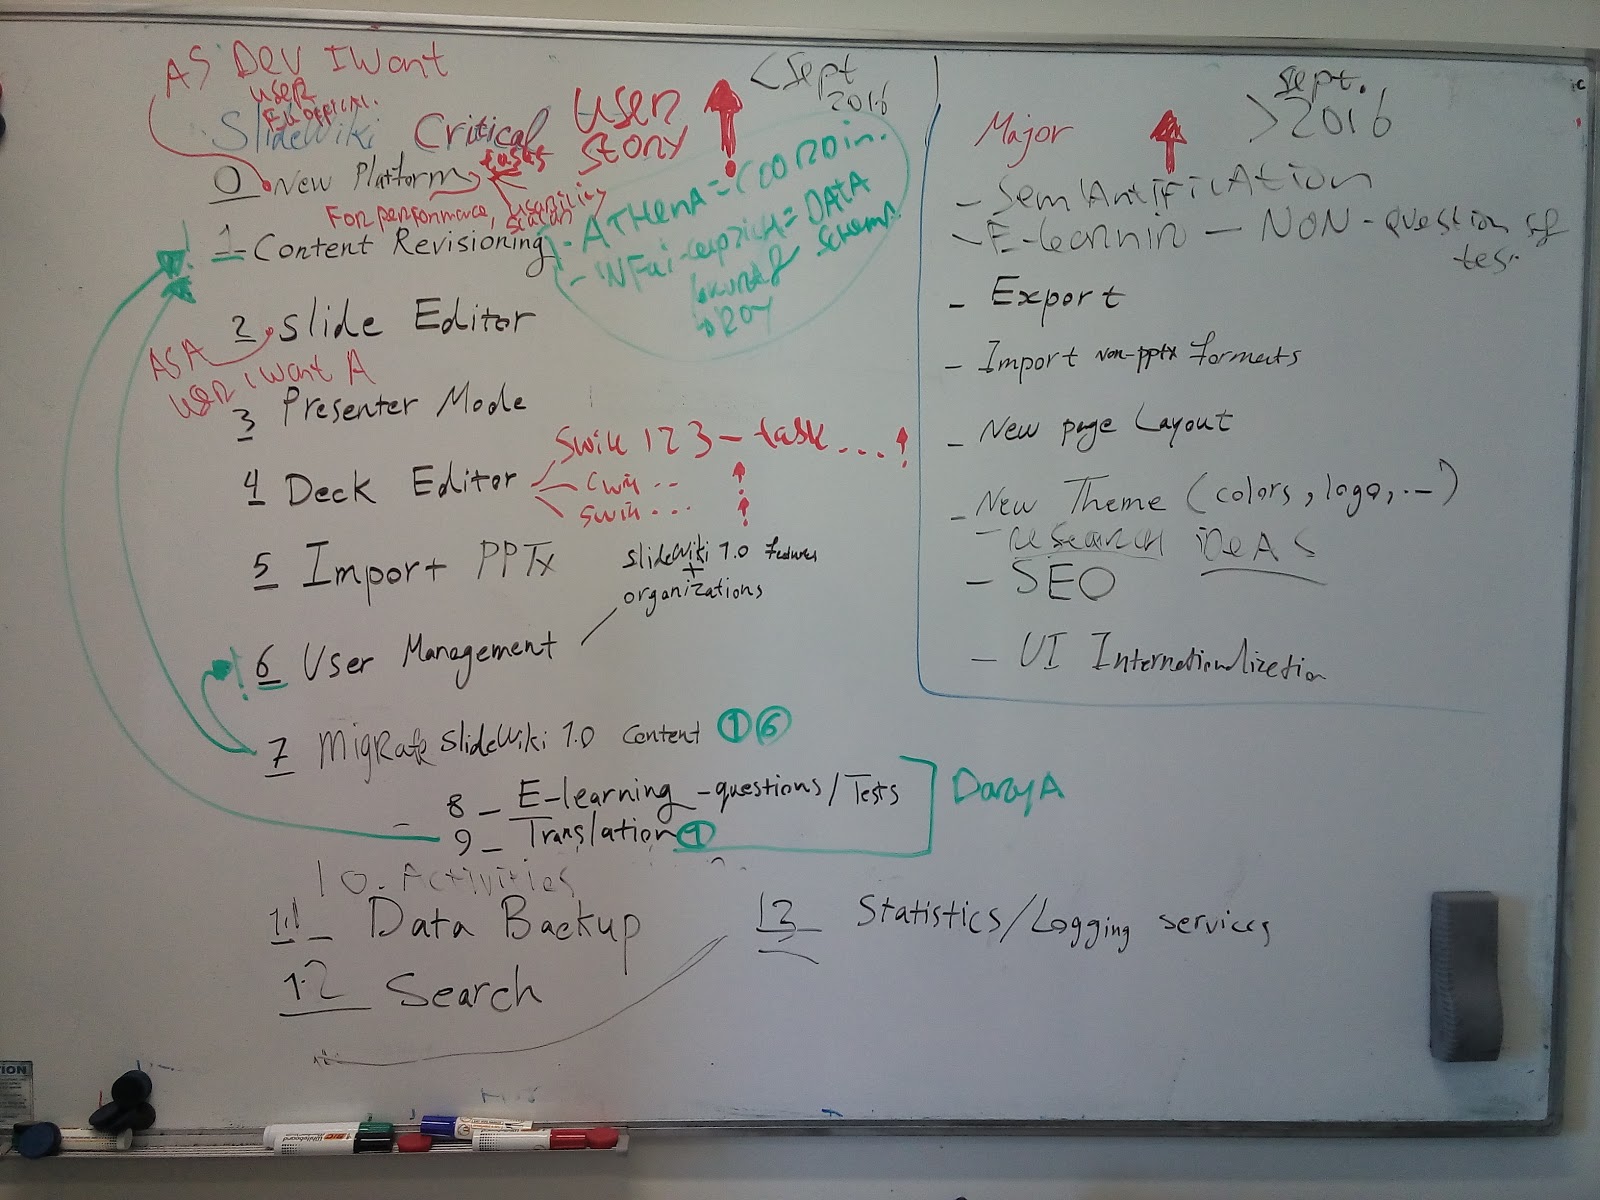 AS DEV I Want
USER
SlideWiki Critical
tasks
USER
STORY
< Sept
2016
0 New Platform
For performance, usability
1- Content Revisioning
- ATHENA = COORDin.
= DATA
schema
ROY
2 slide Editor
AS A
USER I Want A
3 Presenter Mode
4 Deck Editor
Swik 123 - task ... !
Swik ...
5 Import PPTx
SlideWiki 1.0 features
+
organizations
6 User Management
7 MigRate SlideWiki 1.0 Content 1 6
8 - E-learning - questions/Tests
9 - Translation 1
DaryA
10. Activities
11 - Data Backup
12 Search
13 Statistics/Logging services
Major
Sept.
> 2016
- SemAntifiCAtion
- E-learnin - NON-question of
tes.
- Export
- Import non-pptx formats
- New page Layout
- New Theme (colors, logo, ...)
- research ideAS
- SEO
- UI Internationalization